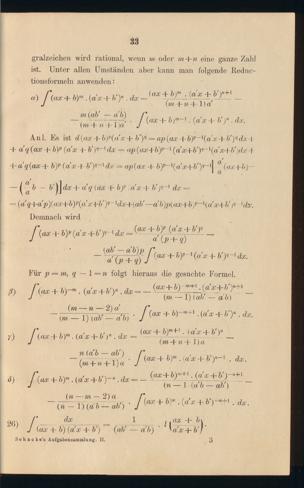 33
gralzeichen wird rational, wenn m oder m+n eine ganze Zahl
ist. Unter allen Umständen aber kann man folgende Reduc-
tionsformeln anwenden:
α) ∫(ax + b)^m . (a'x + b')^n . dx = (ax + b)^m . (a'x + b')^(n+1) / (m + n + 1) a' —
— m(ab' — a'b) / (m + n + 1) a' . ∫(ax + b)^(m-1) . (a'x + b')^n . dx.
Anl. Es ist d(ax + b)^p (a'x + b')^q = ap(ax + b)^(p-1) (a'x + b')^q dx +
+ a'q(ax + b)^p (a'x + b')^(q-1) dx = ap(ax+b)^(p-1) (a'x+b')^(q-1) (a'x+b') dx +
+ a'q(ax + b)^p (a'x + b')^(q-1) dx = ap(ax+b)^(p-1) (a'x+b')^(q-1) [a'/a (ax+b) —
— (a'/a b — b')] dx + a'q (ax + b)^p (a'x + b')^(q-1) dx =
= (a'q+a'p)(ax+b)^p (a'x+b')^(q-1) dx + (ab'—a'b)p(ax+b)^(p-1) (a'x+b')^(q-1) dx.
Demnach wird
∫(ax + b)^p (a'x + b')^(q-1) dx = (ax + b)^p (a'x + b')^q / a' (p + q) —
— (ab' — a'b) p / a' (p + q) ∫(ax + b)^(p-1) (a'x + b')^(q-1) dx.
Für p = m, q — 1 = n folgt hieraus die gesuchte Formel.
β) ∫(ax + b)^(-m) . (a'x + b')^n . dx = — (ax + b)^(-m+1) . (a'x + b')^(n+1) / (m — 1) (ab' — a'b) —
— (m — n — 2) a' / (m — 1) (ab' — a'b) . ∫(ax + b)^(-m+1) . (a'x + b')^n . dx.
γ) ∫(ax + b)^m . (a'x + b')^n . dx = (ax + b)^(m+1) . (a'x + b')^n / (m + n + 1) a —
— n (a'b — ab') / (m + n + 1) a . ∫(ax + b)^m . (a'x + b')^(n-1) . dx.
δ) ∫(ax + b)^m . (a'x + b')^(-n) . dx = — (ax + b)^(m+1) . (a'x + b')^(-n+1) / (n — 1) (a'b — ab') —
— (n — m — 2) a / (n — 1) (a'b — ab') . ∫(ax + b)^m . (a'x + b')^(-n+1) . dx.
26) ∫ dx / (ax + b) (a'x + b') = 1 / (ab' — a'b) . l (ax + b / a'x + b').
Schncke's Aufgabensammlung. II. 3